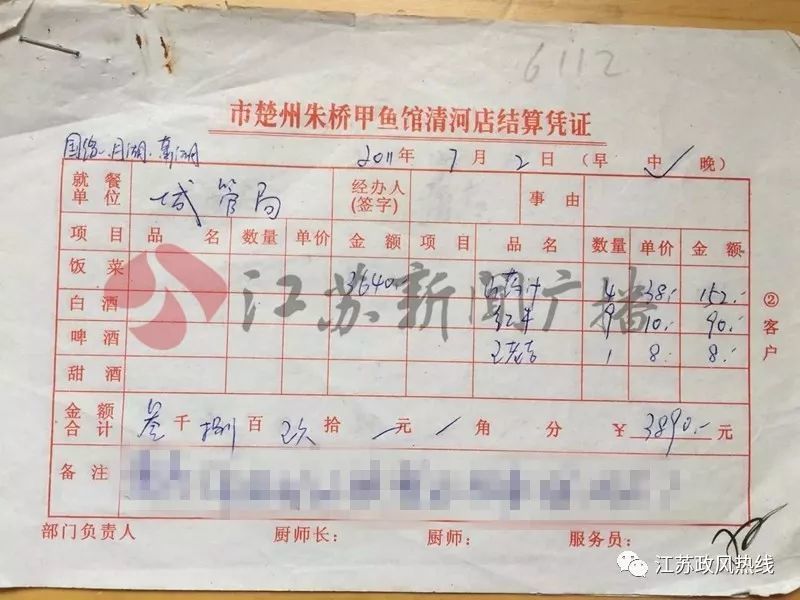 6112
市楚州朱桥甲鱼馆清河店结算凭证
2011年 7月 2日 (早 中✓ 晚)
就餐单位 城管局 经办人(签字) 事由
项目 品名 数量 单价 金额 项目 品名 数量 单价 金额
饭菜 3640.- 4 38.- 152.-
白酒 红牛 9 10.- 90.-
啤酒 王老吉 1 8.- 8.-
甜酒
金额合计 叁千捌百玖拾 元 角 分 ¥3890.-元
备注
②客户
部门负责人 厨师长: 厨师: 服务员:
江苏新闻广播
江苏政风热线